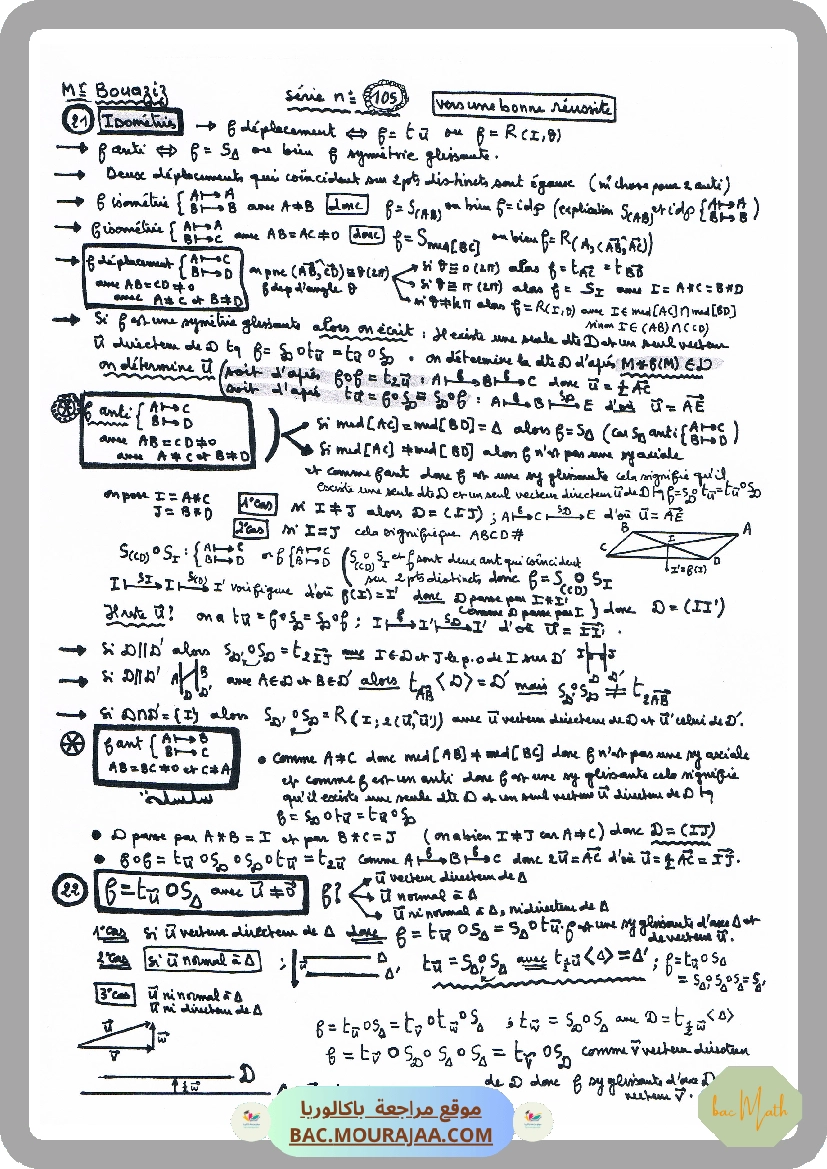 Mr Bouaziz série n° 105 vers une bonne réussite
21 Isométries → f déplacement ⇔ f = t_u⃗ ou f = R(I,θ)
→ f anti ⇔ f = S_Δ ou bien f symétrie glissante.
→ Deux déplacements qui coïncident sur 2 pts distincts sont égaux (m̂ chose pour 2 anti)
→ f isométrie { A↦A B↦B avec A≠B donc f = S_(AB) ou bien f = idp (explication S_(AB) et idp { A↦A B↦B )
→ f isométrie { A↦A B↦C avec AB = AC ≠ 0 donc f = S_med[BC] ou bien f = R(A,(AB⃗,AC⃗))
→ f déplacement { A↦C B↦D avec AB = CD ≠ 0 avec A≠C et B≠D
on pose (AB⃗,CD⃗) ≡ θ(2π) f dep d'angle θ
si θ ≡ 0 (2π) alors f = t_AC⃗ = t_BD⃗
si θ ≡ π (2π) alors f = S_I avec I = A*C = B*D
si θ ≠ kπ alors f = R(I,θ) avec I ∈ med[AC] ∩ med[BD]
sinon I ∈ (AB) ∩ (CD)
→ Si f est une symétrie glissante alors on écrit : il existe une seule dte D et un seul vecteur
u⃗ directeur de D tq f = S_D o t_u⃗ = t_u⃗ o S_D . on détermine la dte D d'après M*f(M) ∈ D
on détermine u⃗ ( soit d'après f o f = t_2u⃗ : A ↦f B ↦f C donc u⃗ = ½ AC⃗
soit d'après t_u⃗ = f o S_D = S_D o f : A ↦f B ↦S_D E d'où u⃗ = AE⃗
f anti { A↦C B↦D avec AB = CD ≠ 0 avec A≠C et B≠D
si med[AC] = med[BD] = Δ alors f = S_Δ (car S_Δ anti { A↦C B↦D )
Si med[AC] ≠ med[BD] alors f n'est pas une sy axiale
et comme f ant donc f est une sy glissante cela signifie qu'il
existe une seule dte D et un seul vecteur directeur u⃗ de D tq f = S_D o t_u⃗ = t_u⃗ o S_D
on pose I = A*C J = B*D 1°cas si I ≠ J alors D = (IJ) ; A ↦f C ↦S_D E d'où u⃗ = AE⃗
2°cas si I = J cela signifie que ABCD #
B A I C D I' = f(I)
S_(CD) o S_I : { A↦C B↦D or f { A↦C B↦D ( S_(CD) o S_I et f sont deux ant qui coïncident
sur 2 pts distincts donc f = S_(CD) o S_I
I ↦S_I I ↦S_(CD) I' voir figure d'où f(I) = I' donc D passe par I*I' comme D passe par I } donc D = (II')
Il reste u⃗ ? on a t_u⃗ = f o S_D = S_D o f ; I ↦f I' ↦S_D I' d'où u⃗ = II'⃗ .
→ Si D//D' alors S_D' o S_D = t_2IJ⃗ avec I ∈ D et J le p.o de I sur D' I J D D'
→ Si D//D' A B D D' avec A ∈ D et B ∈ D' alors t_AB⃗ <D> = D' mais S_D' o S_D ≠ t_2AB⃗
→ Si D∩D' = {I} alors S_D' o S_D = R(I ; 2(u⃗,u'⃗)) avec u⃗ vecteur directeur de D et u'⃗ celui de D'.
f ant { A↦B B↦C AB = BC ≠ 0 et C ≠ A
• comme A≠C donc med[AB] ≠ med[BC] donc f n'est pas une sy axiale
et comme f est un anti donc f est une sy glissante cela signifie
qu'il existe une seule dte D et un seul vecteur u⃗ directeur de D tq
f = S_D o t_u⃗ = t_u⃗ o S_D
• D passe par A*B = I et par B*C = J (on a bien I ≠ J car A ≠ C) donc D = (IJ)
• f o f = t_u⃗ o S_D o S_D o t_u⃗ = t_2u⃗ comme A ↦f B ↦f C donc 2u⃗ = AC⃗ d'où u⃗ = ½ AC⃗ = IJ⃗.
22 f = t_u⃗ o S_Δ avec u⃗ ≠ 0⃗ f ?
u⃗ vecteur directeur de Δ
u⃗ normal à Δ
u⃗ ni normal à Δ, ni directeur de Δ
1°cas Si u⃗ vecteur directeur de Δ donc f = t_u⃗ o S_Δ = S_Δ o t_u⃗. f est une sy glissante d'axe Δ et
de vecteur u⃗.
2°cas Si u⃗ normal à Δ ; u⃗ Δ Δ' t_u⃗ = S_Δ' o S_Δ avec t_½u⃗ <Δ> = Δ' ; f = t_u⃗ o S_Δ
= S_Δ' o S_Δ o S_Δ = S_Δ'
3°cas u⃗ ni normal à Δ
u⃗ ni directeur de Δ
u⃗ w⃗ v⃗
f = t_u⃗ o S_Δ = t_v⃗ o t_w⃗ o S_Δ ; t_w⃗ = S_D o S_Δ avec D = t_½w⃗ <Δ>
f = t_v⃗ o S_D o S_Δ o S_Δ = t_v⃗ o S_D comme v⃗ vecteur directeur
D ½w⃗
de D donc f sy glissante d'axe D
vecteur v⃗.
موقع مراجعة باكالوريا
BAC.MOURAJAA.COM
bac Math